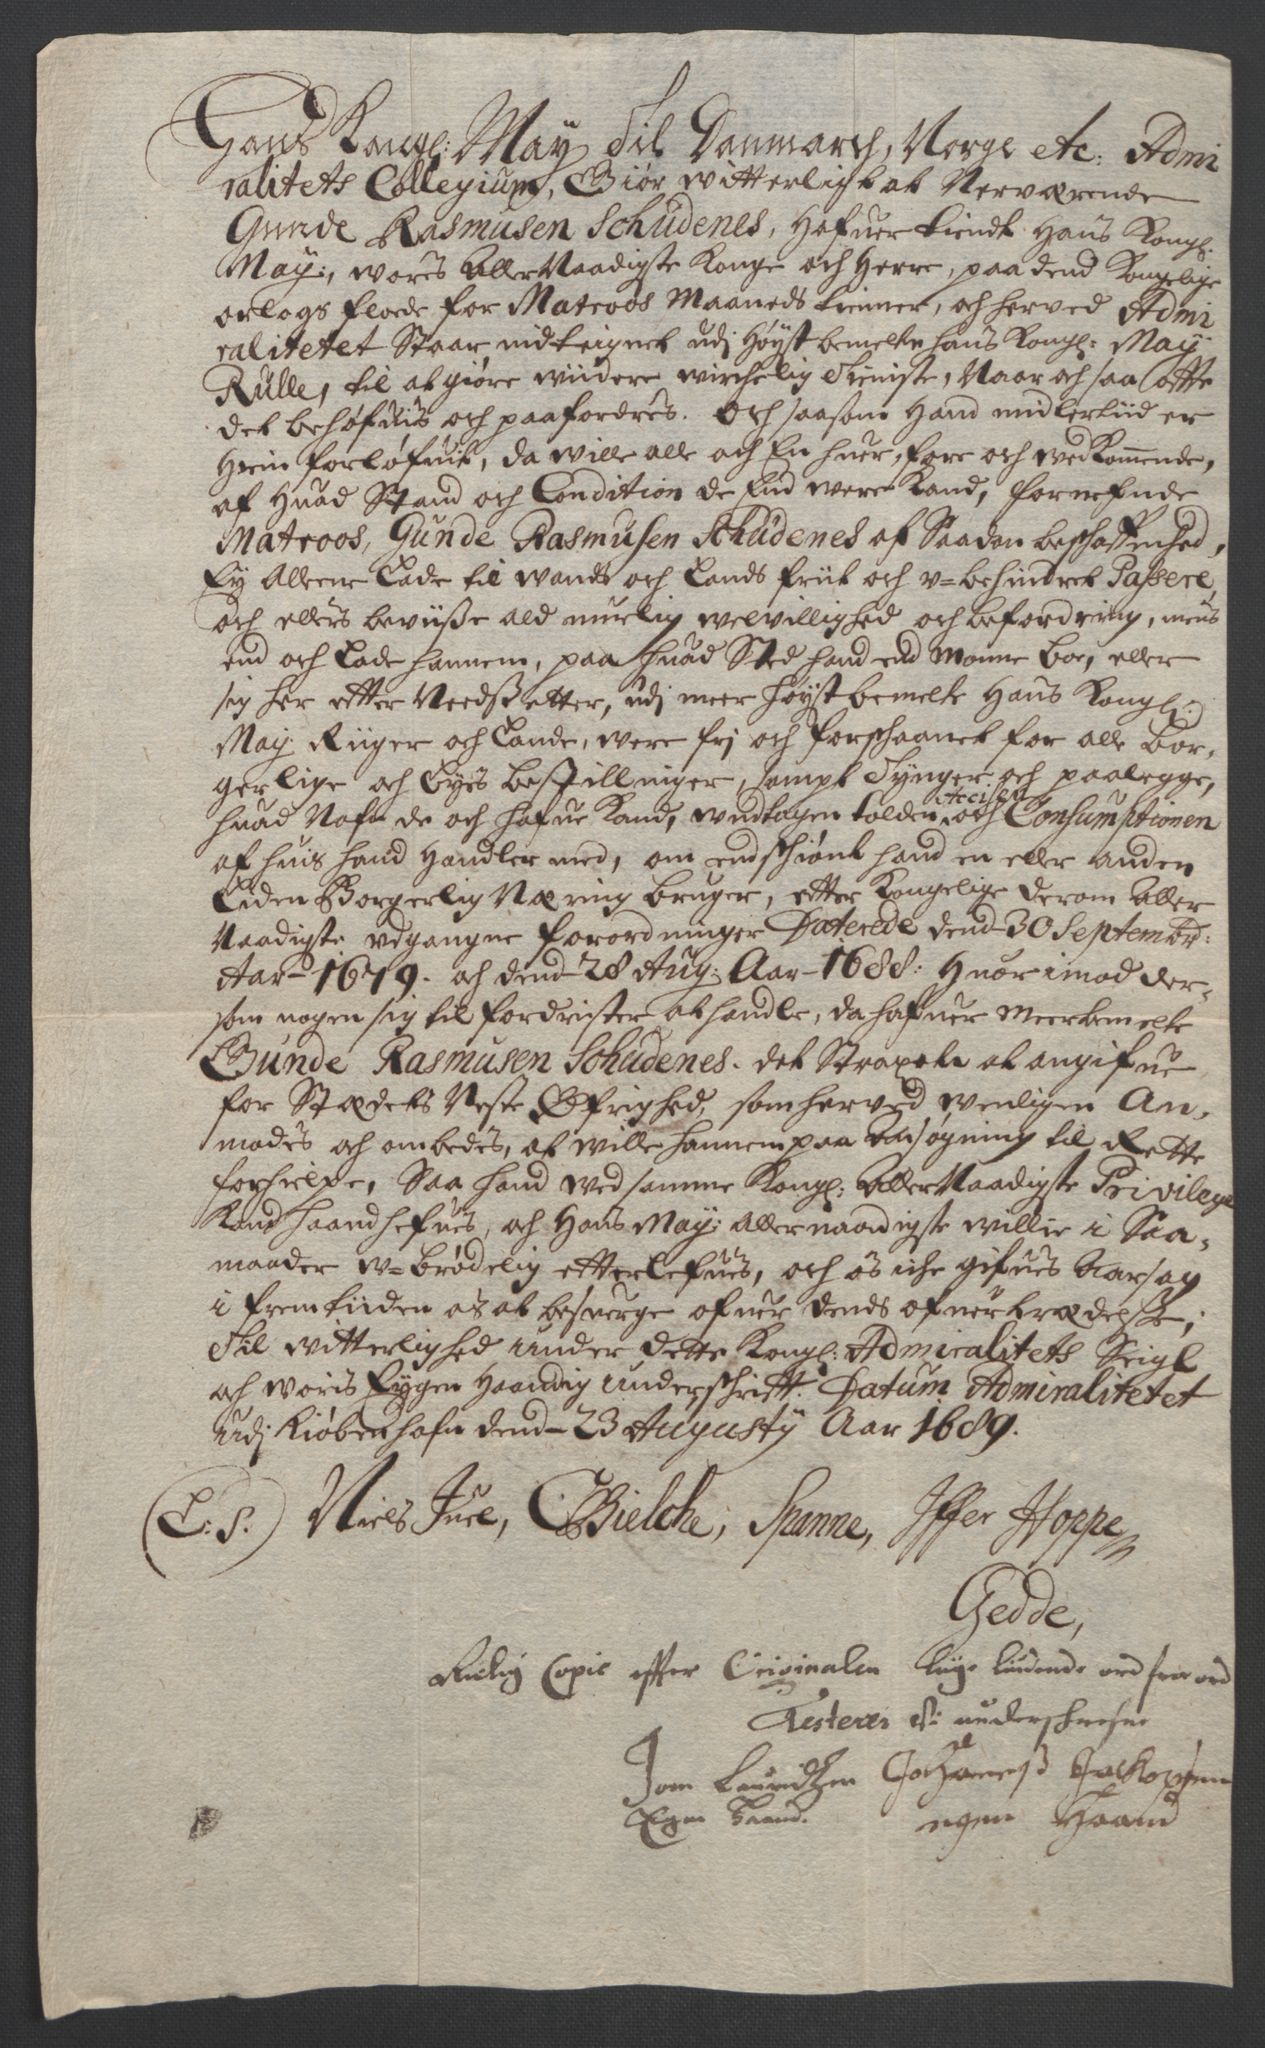 Hans Kongl: May: Til Danmarch, Norge etc: Admi
ralitets Collegium, Giør witterligt at Nerværende
Gunde Rasmusen Schudenes, Hafuer tiendt Hans Kongl:
May:, wores AllerNaadigste Konge och Herre, paa dend Kongelige
orlogs flode for Matroos Maaneds tienner, och herved Admi
ralitetet Staar indteignet udj Høyst bemelte hans Kongl: May:
Rulle, til at giøre widere wirchelig Tieniste, Naar och saa offte
det behøfuis och paafordres. Och saasom Hand midlertiid er
Hiem forløfuit, da wille alle och En huer, fore och wedKommende,
af Huad Stand och Condition de End were Kand, fornefnde
Matroos, Gunde Rasmusen Schudenes af Saadan beschaffenhed,
Ey Alleene Lade til wands och Lands friit och u=behindret Passere
och ellers beviisse ald muelig welvillighed och befordring, mens
end och Lade hannem, paa huad Sted hand end Monne boe, eller
sig her efter Nedsetter, udj meer høyst bemelte Hans Kongl:
May Riiger och Lande, were frj och forschaanet for alle bor,
gerlige och Byes bestillninger, sampt Tynger och paalegge,
huad Nafn de och hafue Kand, undtagen tolden, Accisen och Consumptionen
af huis hand Handler med, om endschiønt hand en eller anden
Liden Borgerlig Næring bruger, efter Kongelige derom Aller
Naadigste udgangne forordninger Daterede dend 30 Septembr:
Aar 1679. och dend 28 Aug: Aar 1688: Huor imod der,
som nogen sig til fordrister at handle, da hafuer Meerbemelte
Gunde Rasmusen Schudenes. det Straxete at angifue
for Stædets Neste Øfrighed, som herved wenligen An,
modes och ombedes, at wille hannem paa Ansøgning til Rette
forhielpe, Saa hand wed samme Kongl: AllerNaadigste Privilegie
Kand haandhefues, och Hans May: Allernaadigste willie i Saa,
maader u=brødelig efterlefues, och os iche gifues Aarsag
i fremtiiden os at besuerge ofuer dends ofuertrædelse,
Til witterlighed under dette Kongl: Admiralitets Seigl
och woris Eygen Haandig underschrifft. Datum Admiralitetet
udj Kiøbenhafn dend 23 Augusty Aar 1689.
L: S. Niels Juel, CBielche, Spanne, Iffer Hoppe
Gedde,
Richtig Copie effter Originalen liige liudende ord fra ord
Testerer vi underschrefne
Joen Lauridtzen Johannes Jackopsen
Egen Haand. egen Haand